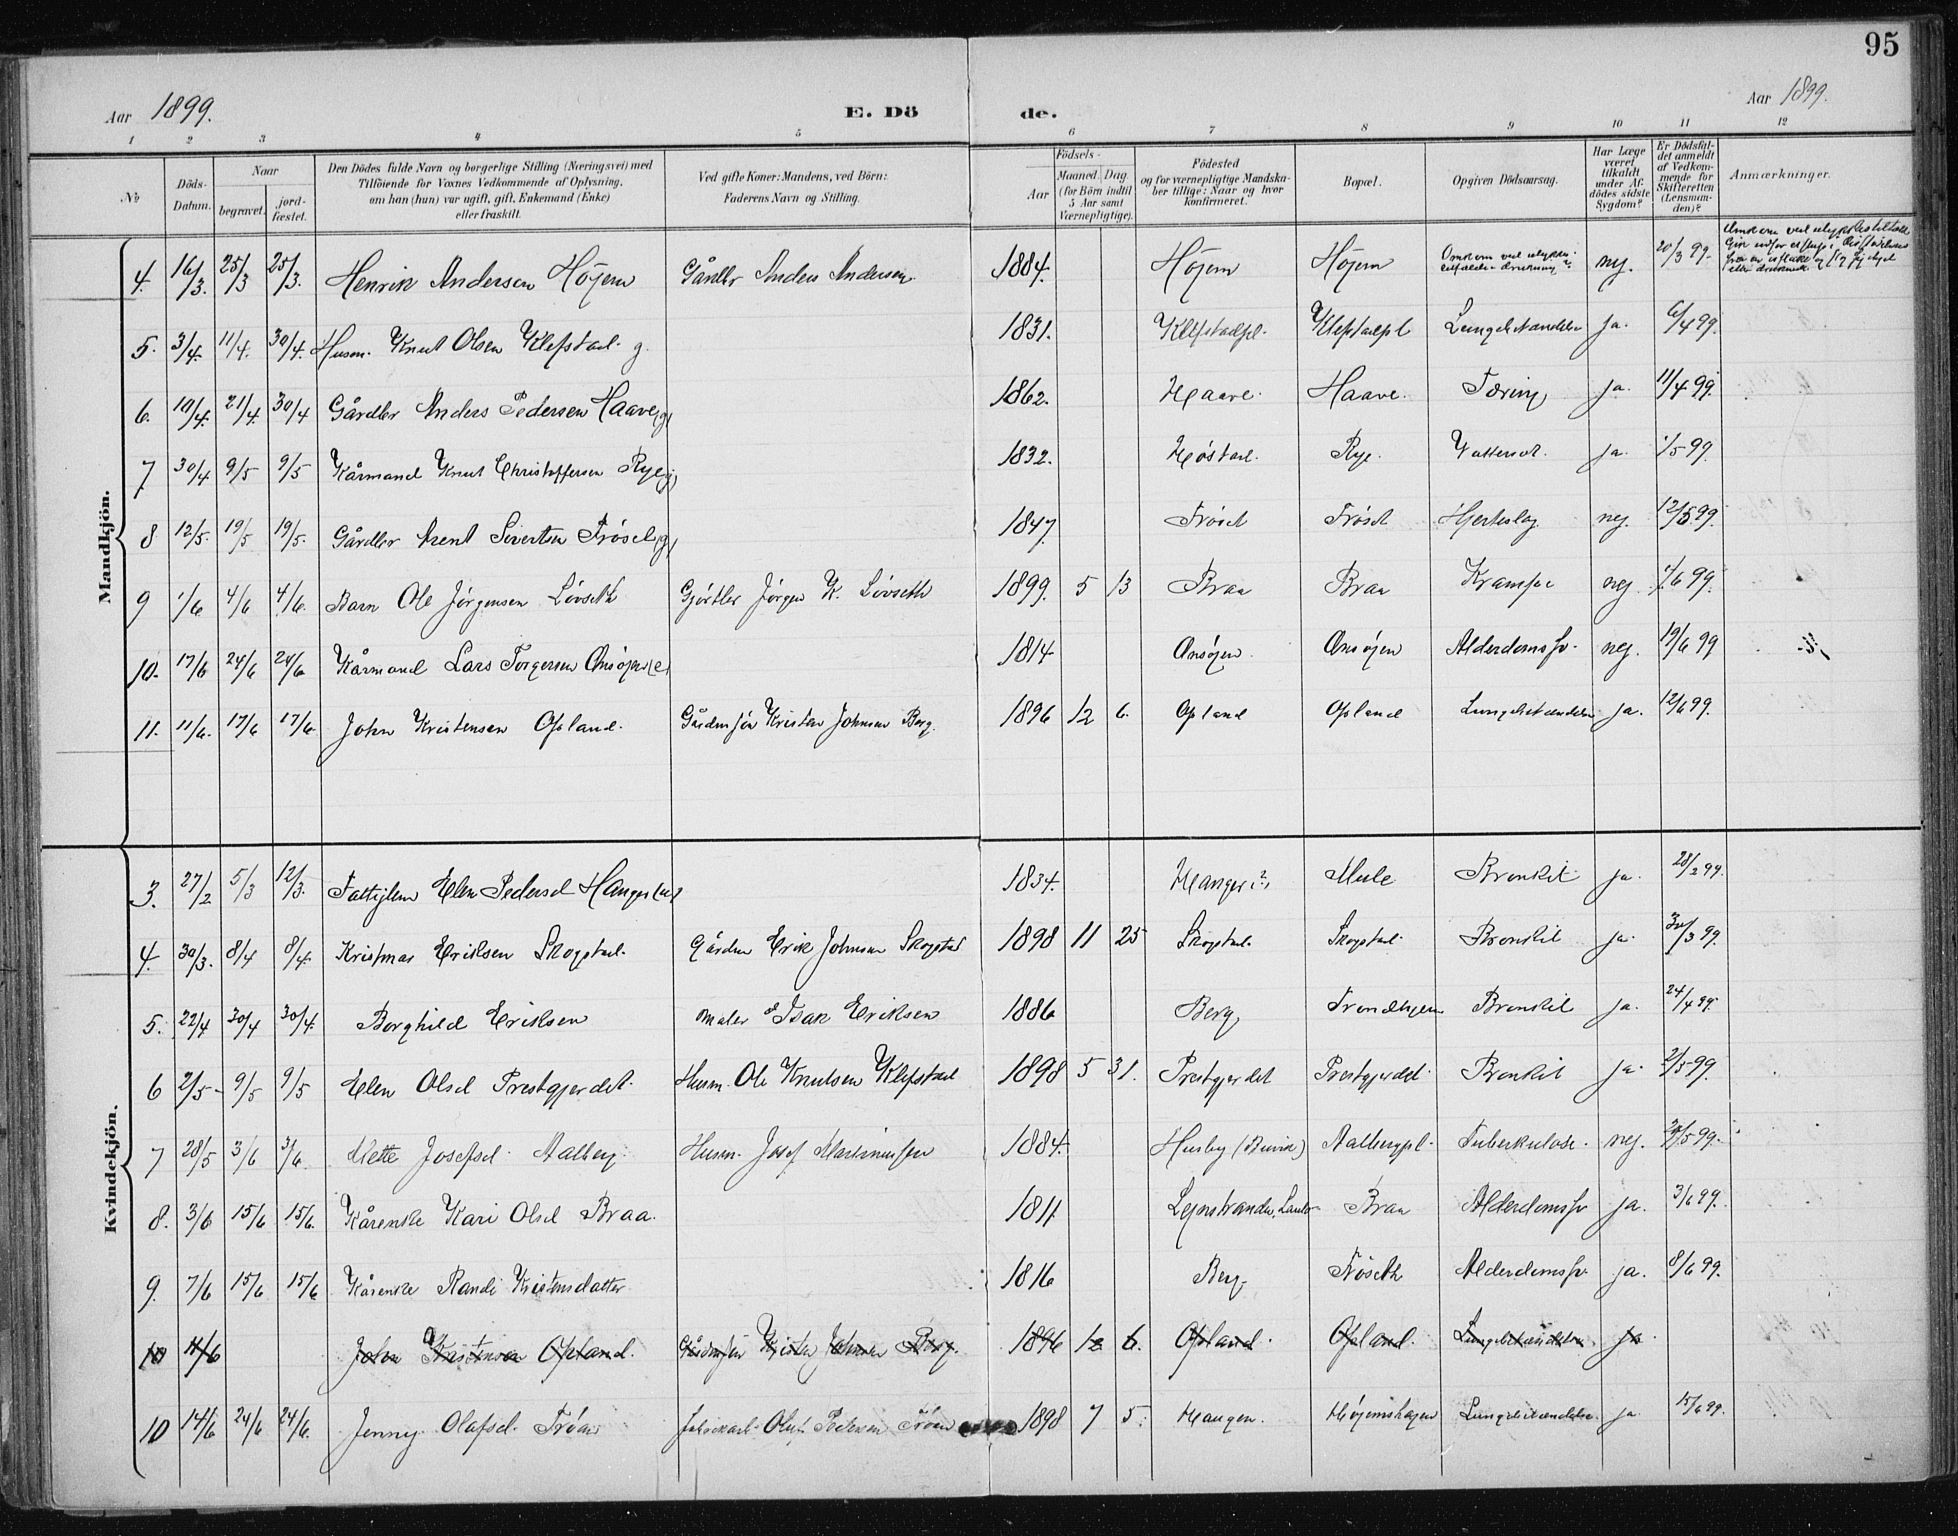 95
Aar 1899.
E. Døde.
Aar 1899.
1 2 3 4 5 6 7 8 9 10 11 12
No
Döds-Datum.
Naar
begravet.
jord-fæstet.
Den Dödes fulde Navn og borgerlige Stilling (Næringsvei) med
Tilföiende for Voxnes Vedkommende af Oplysning,
om han (hun) var ugift, gift, Enkemand (Enke)
eller fraskilt.
Ved gifte Koner: Mandens, ved Börn:
Faderens Navn og Stilling.
Födsels-
Aar
Maaned. Dag
(for Börn indtil
5 Aar samt
Værnepligtige).
Födested
og for værnepligtige Mandska-
ber tillige: Naar og hvor
konfirmeret.
Bopæl.
Opgiven Dödsaarsag.
Har Læge
været
tilkaldt
under Af-
dödes sidste
Sygdom?
Er Dödsfal-
det anmeldt
af Vedkom-
mende for
Skifteretten
(Lensman-
den)?
Anmærkninger.
Mandkjön.
4. 16/3. 25/3 25/3. Henrik Andersen Höjem Gårdbr Anders Andersen 1884. Höjem Höjem Omkom ved ulykkes- tilfælde drukning nej. 20/3 99.
5. 3/4. 11/4. 30/4. Husm. Knut Olsen Klefstad. g. 1831. Klefstadpl. Klefstadpl Lungebetændelse ja. 6/4 99.
6. 10/4. 21/4. 30/4 Gårdbr Anders Pedersen Haave (g) 1862. Haave. Haave. Tæring ja. 11/4 99.
7 30/4. 9/5 9/5 Kårmand Knut Christoffersen Rye (g) 1832. Höstad. Rye. Vattersot. ja. 1/5 99.
8 12/5. 19/5 19/5. Gårdbr Arent Sivertsen Tröset (g) 1847. Tröset Tröset Hjerteslag nej. 12/5 99.
9 1/6 4/6 4/6. Barn Ole Jörgensen Lövseth Gjörtler Jörgen K. Lövseth 1899. 5 13 Braa Braa Krampe nej. 1/6 99.
10. 17/6 24/6 24/6 Kårmand Lars Torgersen Ønsöjen (e) 1814 Ønsöjen. Ønsöjen Alderdomssv. nej. 19/6 99
11. 11/6. 17/6 17/6. John Kristensen Opland. Gårdmsön Kristen Johnsen Berg. 1896 12 6. Opland Opland Lungebetændelse ja. 12/6 99.
Kvindekjön.
3. 27/2 5/3 12/3. Fattiglem Elen Pedersd Hanger (u) 1834. Hanger (?) Mule Bronkit. ja. 28/2 99.
4. 30/3. 8/4 8/4. Kristmas Eriksen Skogstad. Gårdm Erik Johnsen Skogstad 1898 11 25 Skogstad. Skogstad. Bronkit ja. 30/3 99.
5. 22/4 30/4 30/4. Borghild Eriksen Maler Isak Eriksen 1886 Berg Trondhjem Bronkit ja. 24/4 99.
6 2/5 9/5 9/5 Elen Olsd Prestgjerdet. Husm. Ole Knutsen Klefstad 1898 5 31. Prestgjerdet Prestgjerdet. Bronkit ja. 2/5 99.
7 28/5 3/6 3/6. Mette Josefsd. Aalberg Husm. Josef Martinussen 1884. Husby (Buvik) Aalbergpl. Tuberkulose. nej. 30/5 99.
8. 3/6 15/6 15/6. Kårenke Kari Olsd Braa. 1811. Braa Alderdomssv ja. 3/6 99.
9. 7/6 15/6 15/6 Kårenke Randi Kristensdatter 1816 Berg Tröseth Alderdomssv. ja. 8/6 99.
10 11/6 John Kristensen Opland. Gårdmsön Kristen Johnsen Berg. 1896 12 6. Opland. Opland. Lungebetændelse ja.
10 14/6 24/6 24/6. Jenny Olafsd. Tröen Olaf Pedersen Tröen 1898 7 5. Haugen. Höjemshagen Lungebetændelse. ja 15/6 99.